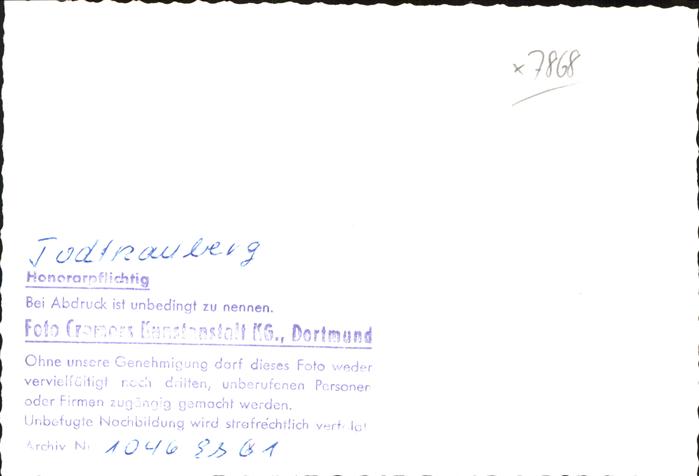 x 7868
Todtnauberg
Honorarpflichtig
Bei Abdruck ist unbedingt zu nennen.
Foto Cramers Kunstanstalt KG., Dortmund
Ohne unsere Genehmigung darf dieses Foto weder
vervielfältigt noch dritten, unberufenen Personen
oder Firmen zugängig gemacht werden.
Unbefugte Nachbildung wird strafrechtlich verfolgt
Archiv Nr 1046